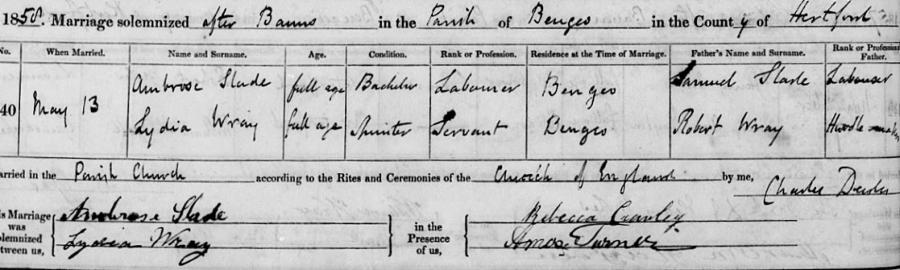 1858. Marriage solemnized after Banns in the Parish of Bengeo in the County of Hertford
No. When Married. Name and Surname. Age. Condition. Rank or Profession. Residence at the Time of Marriage. Father's Name and Surname. Rank or Profession Father.
40 May 13 Ambrose Slade full age Bachelor Labourer Bengeo Samuel Slade Labourer
Lydia Wray full age Spinster Servant Bengeo Robert Wray Hurdle-maker
arried in the Parish Church according to the Rites and Ceremonies of the Church of England by me, Charles
is Marriage was olemnized etween us, Ambrose Slade in the Presence of us, Rebecca Crawley
Lydia Wray Amos Turner